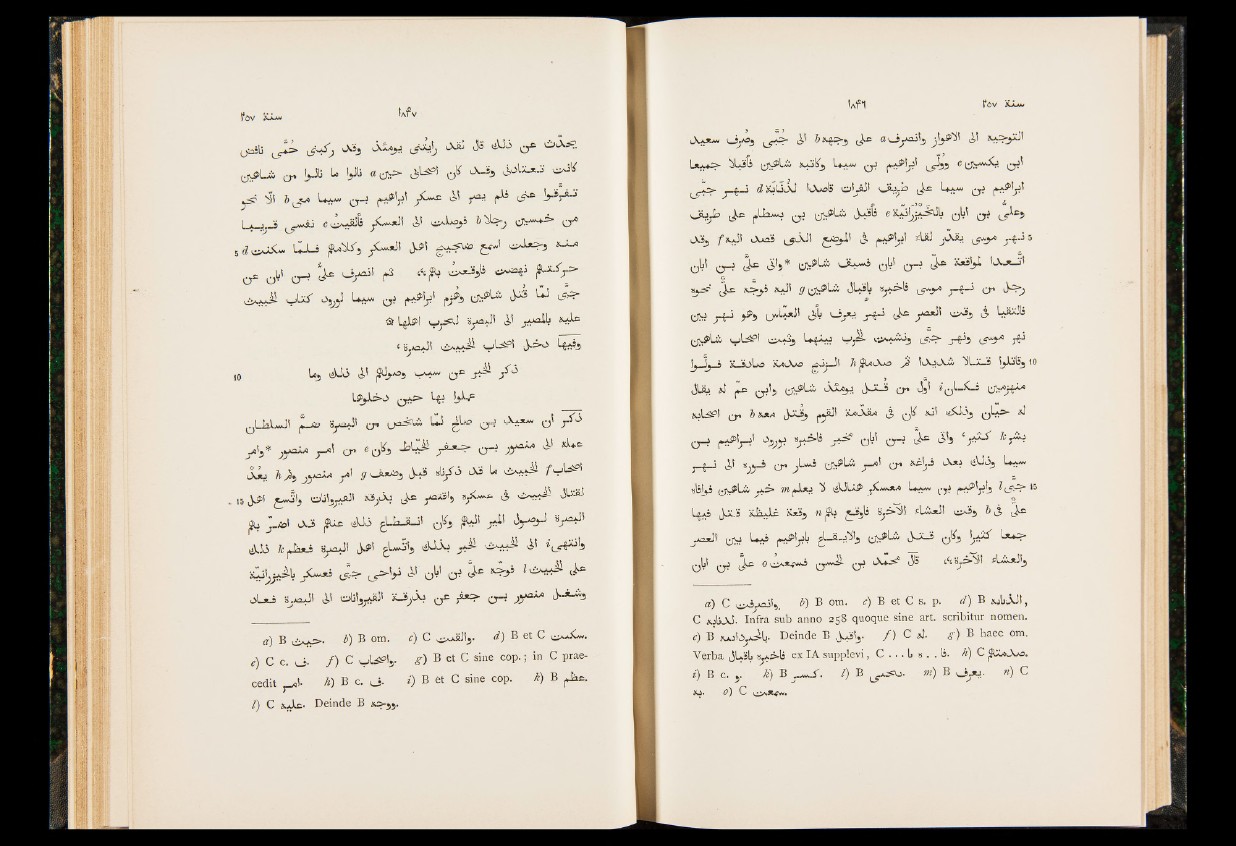 سنة ٢٥٧ ١٨٤٦
التوجيه الى الاهواز وانصرف a على وجهه b الى جُبَّى وصُرف سعيد
ابن يكسين c ووُلّى ابراهيم بن سيما وكاتبه شاهين فأقبلا جميعا
ابراهيم بن سيما على طريق الفرات قاصدا لذُنَابَة d نهر جبّى
وعلىّ بن ابان بالخَيْزُرانيّة e فأقبل شاهين بن بسطام على طريق
نهر موسى يقدّر لقاء ابراهيم في الموضع الذى قصد اليه f وقد 5
اتّعدا لمواقعة علىّ بن ابان فسبق شاهين *واتى علىّ بن ابان
رجل من نهر موسى فاخبره باقبال شاهين g اليه فوجّه علىّ نحوه
فالتقيا في وقت العصر على نهر يعرف بأبى العبّاس وهو نهر بين
نهر موسى ونهر جبّى ونشبت الحرب بينهما وثبت اصحاب شاهين
وقاتلوا قتالا شديدا ثم صدمهم h الزنج صدمة صادقة فولّوا 10
منهزمين فكان i اوّل من قتل يومئذ شاهين وابن عم له يقال
له حيّان وذلك انه كان في مقدّمة القوم وقتل معه b من اصحابه
بشر k كثير، واتى علىّ بن ابان مخبر فاخبره بورود ابراهيم بن
سيما وذلك بعد فراغه من امر شاهين فسار من فوره الى نهر
جبّى l وابراهيم بن سيما معسكر هنالك لا يعلم m خبر شاهين فوافاه 15
علىّ في b وقت العشاء الآخرة فاوقع بهم n وقعة غليظة قتل فيها
جمعا كثيرا وكان قتل شاهين والايقاع بابراهيم فيما بين العصر
والعشاء الآخرة، قال محمّد بن الحسن فسمعتُ o علىّ بن ابان
a) C وانصرفت. b) B om. c) B et C s. p. d) B
C لدنابه. Infra sub anno 258 quoque sine art. scribitur nomen.
e) B Deinde B واقبل. f) C له. g) B haec om.
Verba فاخبره باقبال ex IA supplevi, C h) C
i) B c. و. k) B l) B m) B يعرف. n) C
به. o) C سمعت.
سنة ٢٥٧ ١٨٤٧
يحدّث عن ذلك قال لقد رايتُنى يومئذ وقد ركبنى حُمَّى نافض
كانت تعتادنى وقد كان اصحابى حين a نالوا ما نالوا من شاهين
تفرّقوا عنى فلم يصر الى عسكر ابراهيم بن سيما معى b الا نحو
من خمسين رجلا b فوصلت الى العسكر فألقيتُ c نفسى قريبا
منه وجعلت اسمع ضجيج اهل العسكر وكلامهم فلمّا سكنت d 5
حركتهم نهضت فاوقعتُ بهم، ثم انصرف علىّ بن ابان عن
جبّى لمّا قُتل شاهين وهُزم ابراهيم بن سيما لورود كتاب الخبيث
عليه بالمصير الى البصرة لحرب اهلها
وفيها دخل اصحاب الخبيث البصرة،
ذكر الخبر عن سبب وصولهم الى ذلك وما 10
عملوا بها حين دخلوها
ذكر ان سعيد بن صالح لمّا شخص من البصرة ضمّ السلطان
عمله الى منصور بن جعفر الخيّاط وكان e من امر منصور *وامر
اصحاب f الخبيث ما قد ذكرناه قبل وضعف g امر منصور ولم h يعُد
لقتال الخبيث في عسكره واقتصر على بذرقة القيروانات واتّسع اهل 15
البصرة لوصول المير اليهم وكان انقطاع ذلك عنهم قد اضرّ بهم
وانتهى i الى الخبيث الخبر بذلك واتّساع اهل البصرة فعظم k ذلك
على الخبيث l فوجّه علىّ بن ابان الى نواحى جبّى فعسكر بالخيزرانيّة
وشغل منصور بن جعفر عن بذرقة القيروانات الى البصرة فعاد
a) B حيث. b) B om. c) C والقيت. d) B et C سكت.
e) C c. ف. f) C واصحاب. g) B et C sine cop.; in C prae-
cedit امر. h) B c. ف. i) B et C sine cop. k) B عظم.
l) C عليه. Deinde B ووجه.